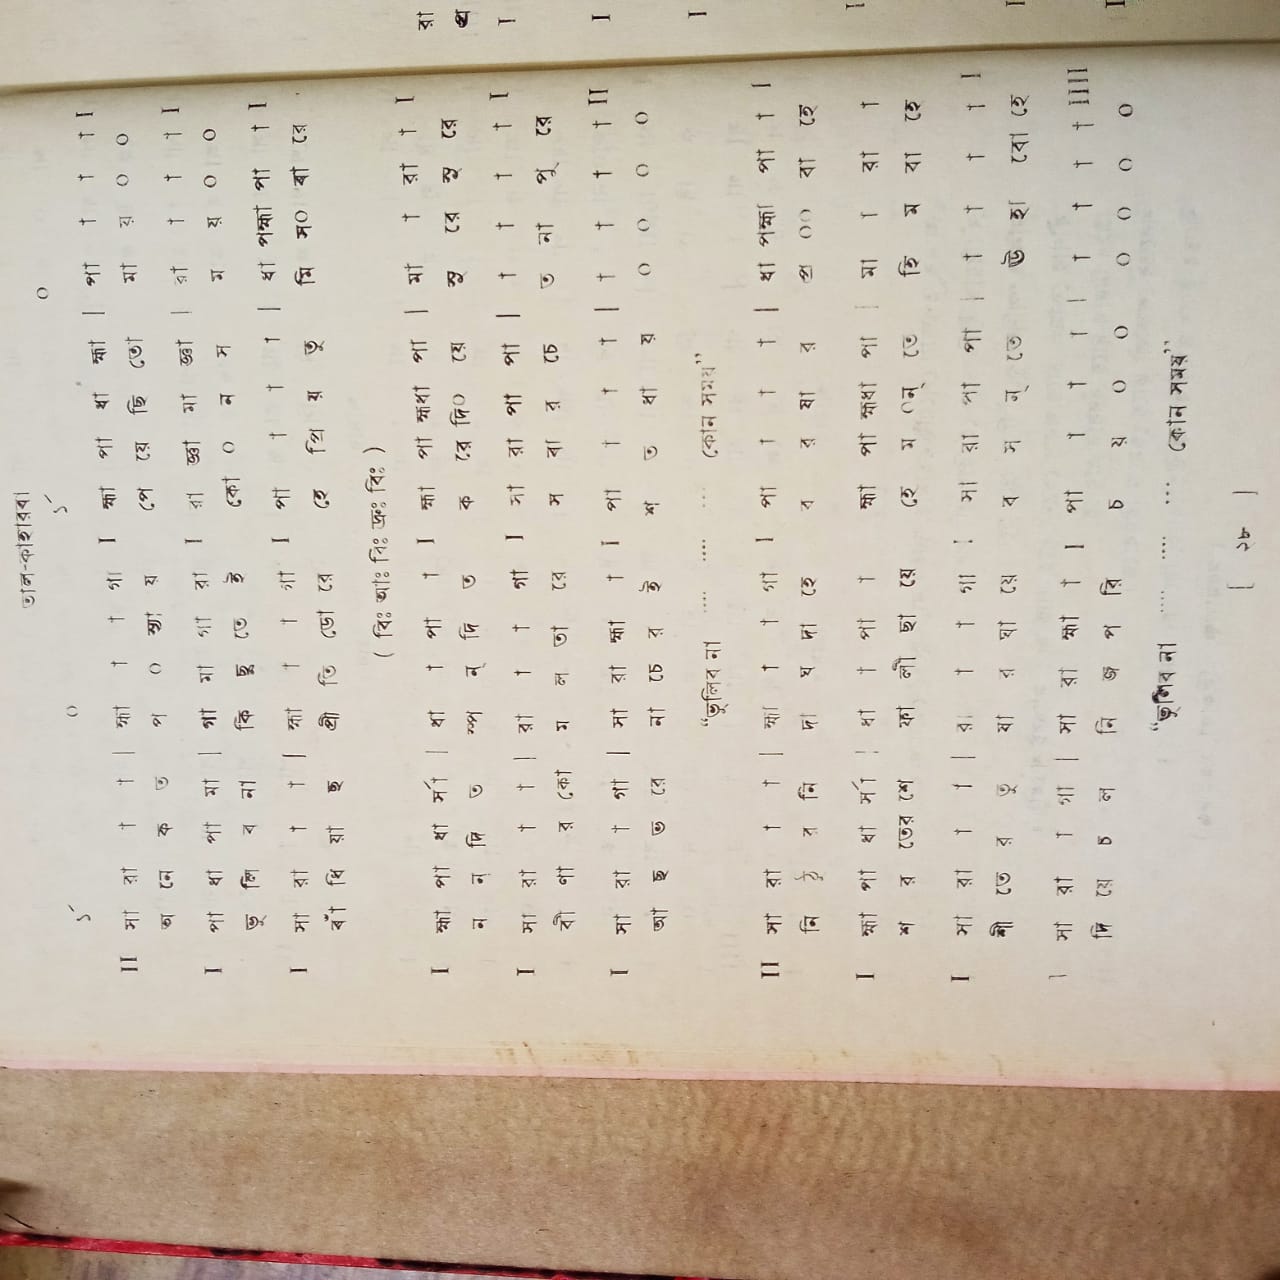 তাল-কাহারবা
১´ ০ ১´ ০
II সা রা া া | হ্মা া া গা I হ্মা পা ধা হ্মা | পা া া া I
অ নে ক ত প ০ স্যা য় পে য়ে ছি তো মা য় ০ ০
I পা ধা পা মা | গা মা গা রা I রা জ্ঞা মা জ্ঞা | রা া া া I
ভু লি ব না কি ছু তে ই কো ০ ন স ম য় ০ ০
I সা রা া া | হ্মা া া গা I পা া া া | ধা পহ্মা পা া I
বাঁ ধি য়া ছ প্রী তি ডো রে হে প্রি য় তু মি স০ বা রে
( বিঃ আঃ বিঃ দ্রুঃ বিঃ )
I হ্মা পা ধা র্সা | ধা া পা া I হ্মা পা হ্মধা পা | মা া রা া I
ন ন্ দি ত স্প ন্ দি ত ক রে দি০ য়ে সু রে সু রে
I সা রা া া | রা া া গা I সা রা পা পা | া া া া I
বী ণা র কো ম ল তা রে স বা র চে ত না পূ রে
I সা রা া গা | সা রা হ্মা া I পা া া া | া া া া II
আ ছ ত রে না চে র ই শ ত ধা য় ০ ০ ০ ০
“ভুলিব না .... .... ... কোন সময়”
II সা রা া া | হ্মা া া গা I পা া া া | ধা পহ্মা পা া I
নি ঠু র নি দা ঘ দা হে ব র ষা র প্র ০০ বা হে
I হ্মা পা ধা র্সা | ধা া পা া I হ্মা পা হ্মধা পা | মা া রা া I
শ র তের শে ফা লী ছা য়ে হে ম ০ন্ তে হি ম বা হে
I সা রা া া | রা া া গা I সা রা পা পা | া া া া I
শী তে র তু ষা র ঘা য়ে ব স ন্ তে উ হা বো হে
I সা রা া গা | সা রা হ্মা া I পা া া া | া া া া IIII
দি য়ে চ ল নি জ প রি চ য় ০ ০ ০ ০ ০ ০
“ভুলিব না .... .... ... কোন সময়”
[ ২৮ ]